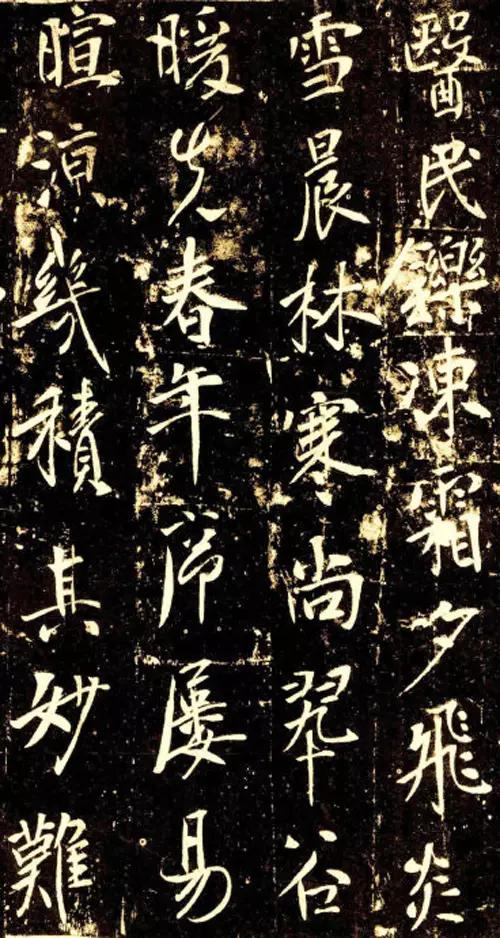 醫民鑠凍霜夕飛炎
雪晨林寒尚翠谷
暖先春年屢易
暄涼幾積其妙難